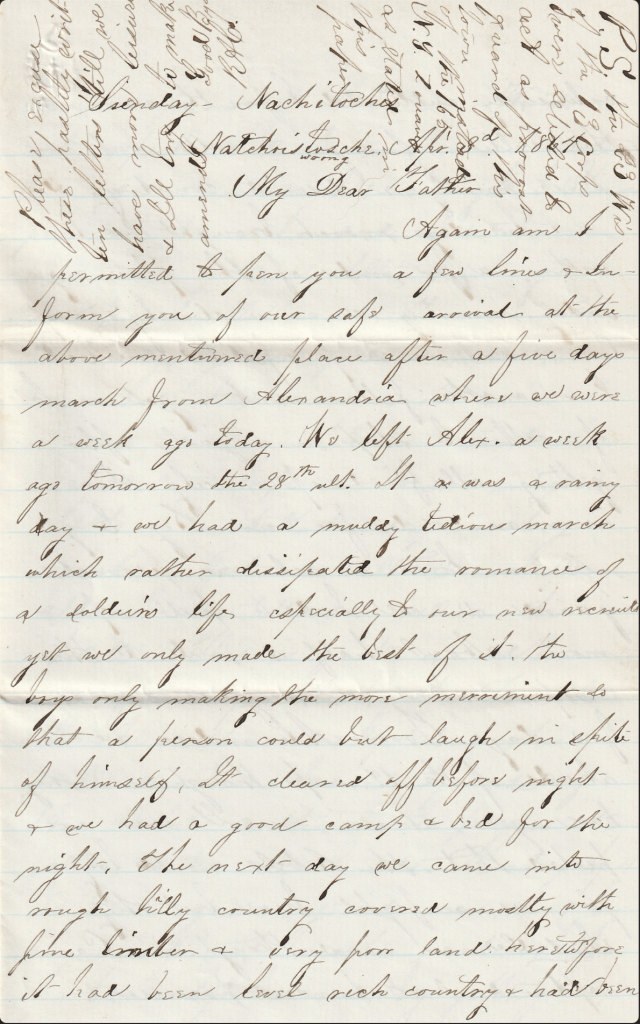 Sunday - Nachitoches
Natchoistosche, Apr. 3d, 1864
woong
My Dear Father
Again am I
permitted to pen you a few lines & In-
form you of our safe arrival at the
above mentioned place after a five days
march from Alexandria where we were
a week ago today. We left Alex. a week
ago tomorrow the 28th ult. It was a rainy
day & we had a muddy tedious march
which rather dissipated the romance of
a soldiers life especially to our new recruits
yet we only made the best of it. the
boys only making the more merriment so
that a person could but laugh in spite
of himself, It cleared off before night
& we had a good camp & bed for the
night. The next day we came into
rough hilly country covered mostly with
pine timber & very poor land. heretofore
it had been level rich country & had been
P.S. the 23 Wis
of the 13 Corps
were selected to
act as provost
guard in this
town instead
of the 165
N.Y. Zouaves
as stated in
this
paper
Please excuse
these hastily writ
ten letters till we
have more leisure
& I'll try to make
amends Good bye